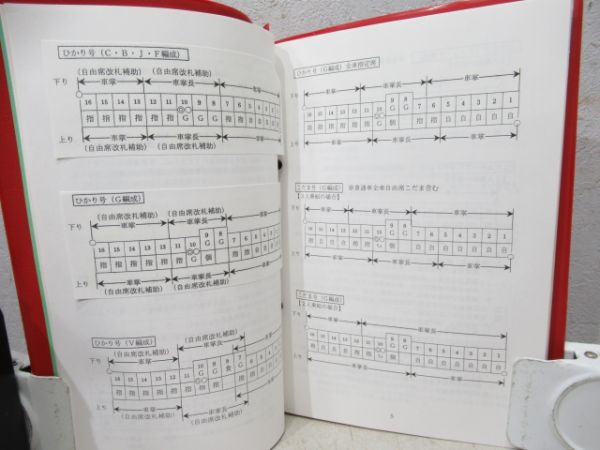 ひかり号(C・B・J・F編成)
(自由席改札補助) (自由席改札補助)
下り 車掌 車掌長 車掌
16 15 14 13 12 11 10 9 8 7 6 5 4
指 指 指 指 指 指 G G G 指 指 自 自
上り 車掌 車掌長
(自由席改札補助) (自由席改札補助)
ひかり号(G編成)
(自由席改札補助) (自由席改札補助)
下り 車掌 車掌長
16 15 14 13 12 11 10 9 8 7 6 5
指 指 指 指 指 指 G G 個 指
上り 車掌 車掌長
(自由席改札補助) (自由席改札補助)
ひかり号(V編成)
(自由席改札補助) (自由席改札補助)
下り 車掌 車掌長 車掌
16 15 14 13 12 11 10 9 8 7 6 5 4
指 指 指 指 指 指 G G 食 G
上り 車掌 車掌長
(自由席改札補助) (自由席改札補助)
ひかり号(G編成)全車指定席
下り 車掌 車掌長 車掌
16 15 14 13 12 11 10 9 8 7 6 5 4 3 2 1
指 指 指 指 指 指 G G 個 指 指 指 指 指 指 指
上り 車掌 車掌長 車掌
こだま号(G編成)
【3人乗組の場合】
下り 車掌 車掌長 車掌
16 15 14 13 12 11 10 9 8 7 6 5 4 3 2 1
上り 車掌 車掌長 車掌
こだま号(G編成)
【2人乗組の場合】
下り 車掌 車掌長
16 15 14 13 12 11 10 9 8 7 6 5 4 3 2 1
上り 車掌長 車掌
5